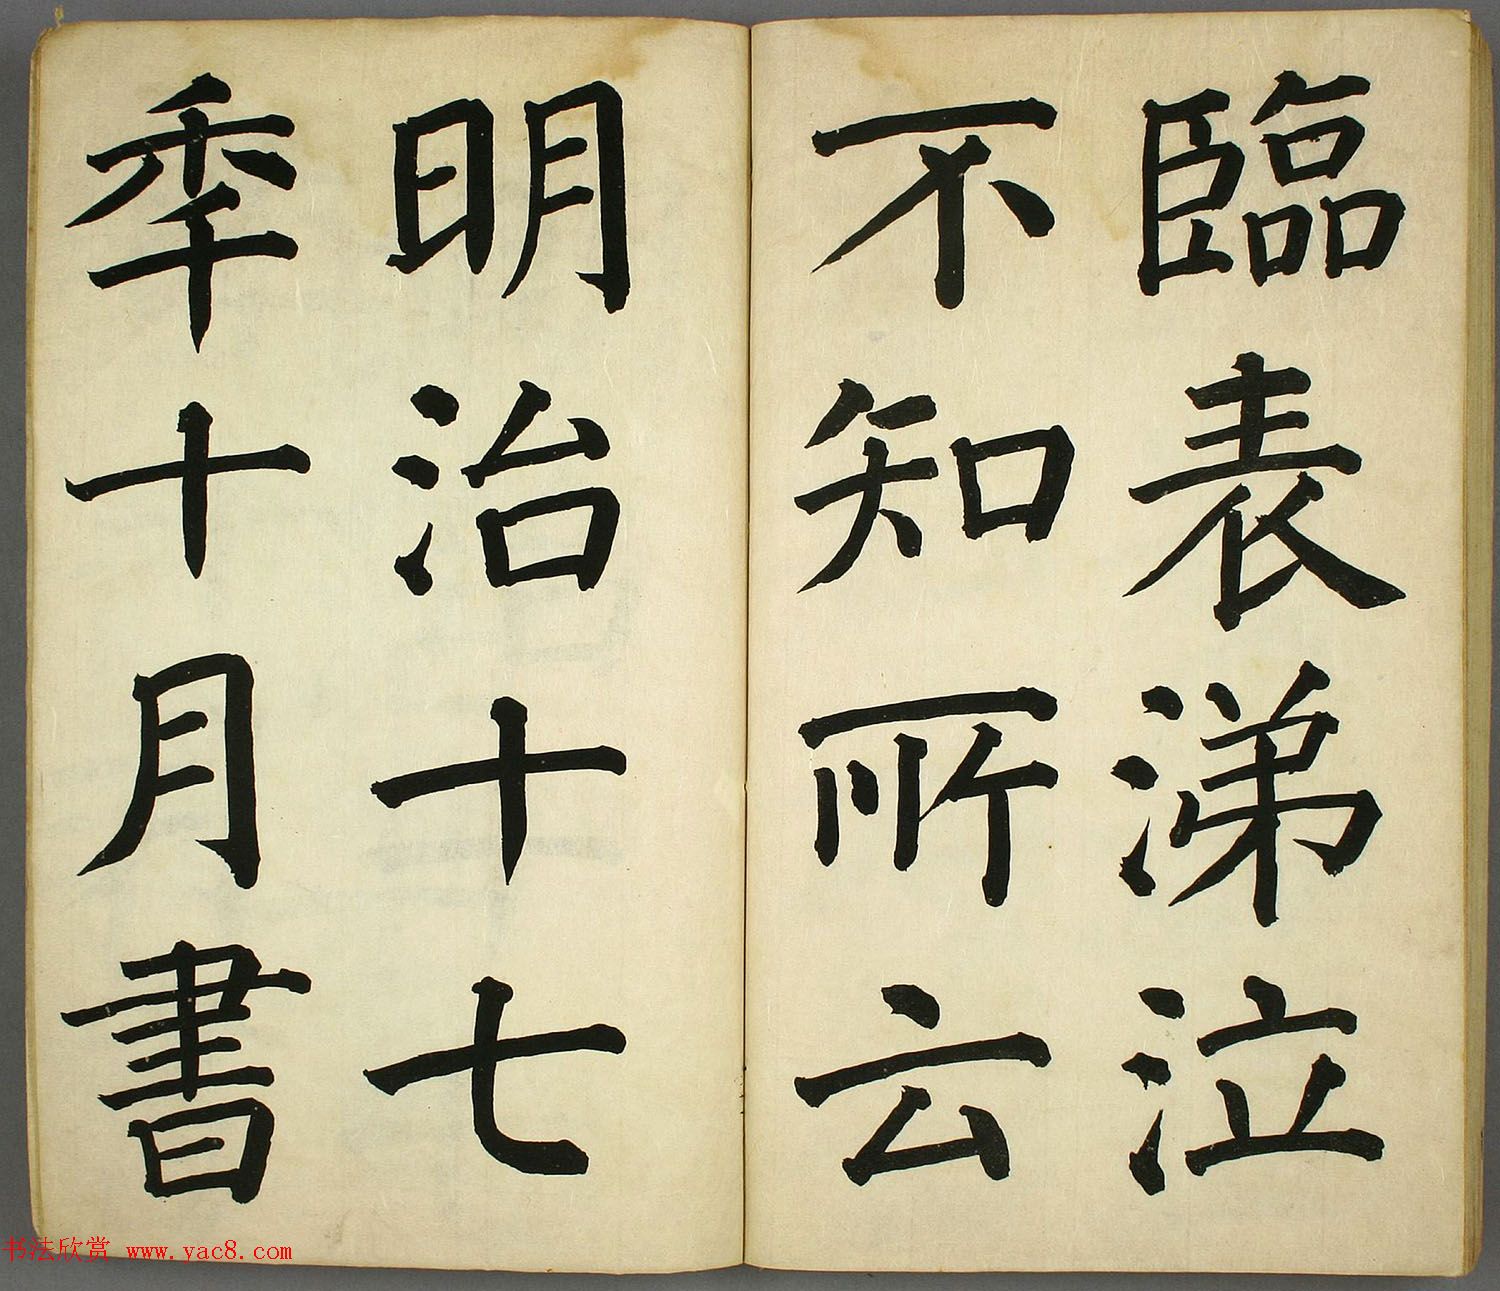 臨表涕泣
不知所云
明治十七
秊十月書
书法欣赏 www.yac8.com